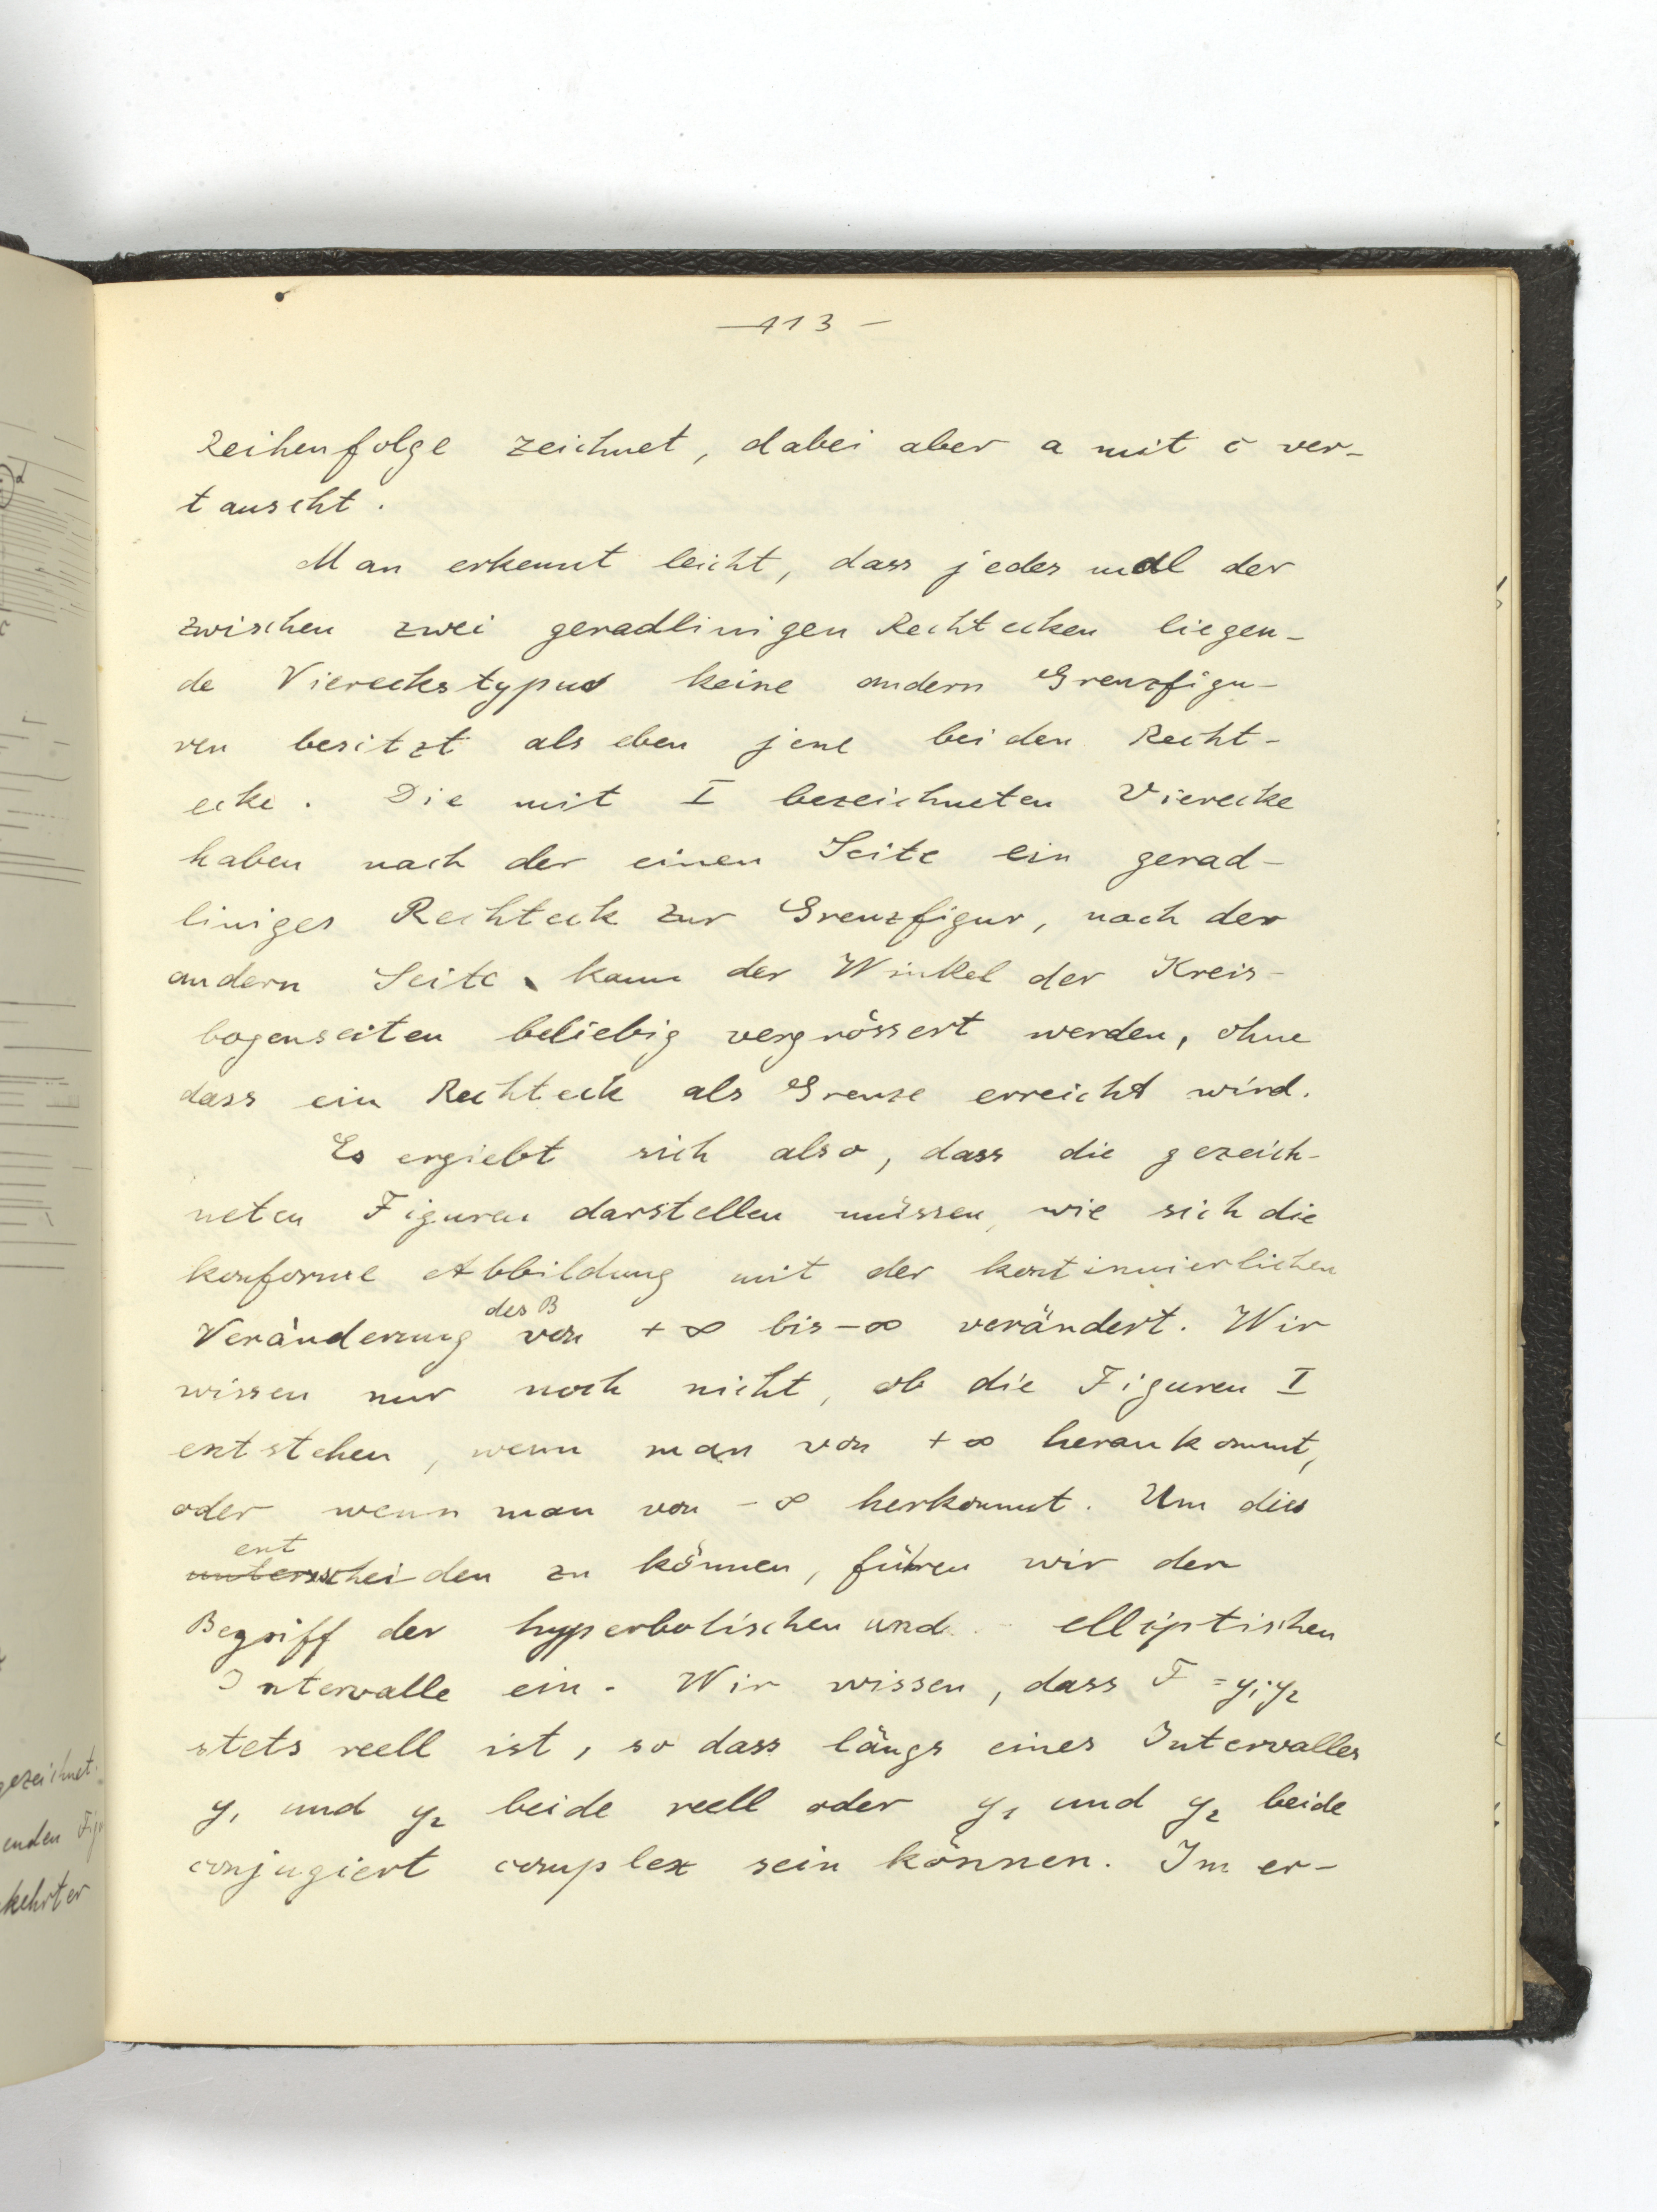 — 113 —
Reihenfolge zeichnet, dabei aber a mit c ver-
tauscht.
Man erkennt leicht, dass jedes mal der
zwischen zwei geradlinigen Rechtecken liegen-
de Viereckstypus keine andern Grenzfigu-
ren besitzt als eben jene beiden Recht-
ecke. Die mit I bezeichneten Vierecke
haben nach der einen Seite ein gerad-
liniges Rechteck zur Grenzfigur, nach der
andern Seite kann der Winkel der Kreis-
bogenseiten beliebig vergrössert werden, ohne
dass ein Rechteck als Grenze erreicht wird.
Es ergiebt sich also, dass die gezeich-
neten Figuren darstellen müssen, wie sich die
konforme Abbildung mit der kontinuierlichen
des B
Veränderung von + ∞ bis - ∞ verändert. Wir
wissen nur noch nicht, ob die Figuren I
entstehen, wenn man von + ∞ herankommt,
oder wenn man von - ∞ herkommt. Um dies
ent
unterscheiden zu können, führen wir den
Begriff der hyperbolischen und elliptischen
Intervalle ein. Wir wissen, dass F = y₁·y₂
stets reell ist, so dass längs eines Intervalles
y₁ und y₂ beide reell oder y₁ und y₂ beide
conjugiert complex sein können. Im er-
gezeichnet.
enden Fig
kehrter
d
c